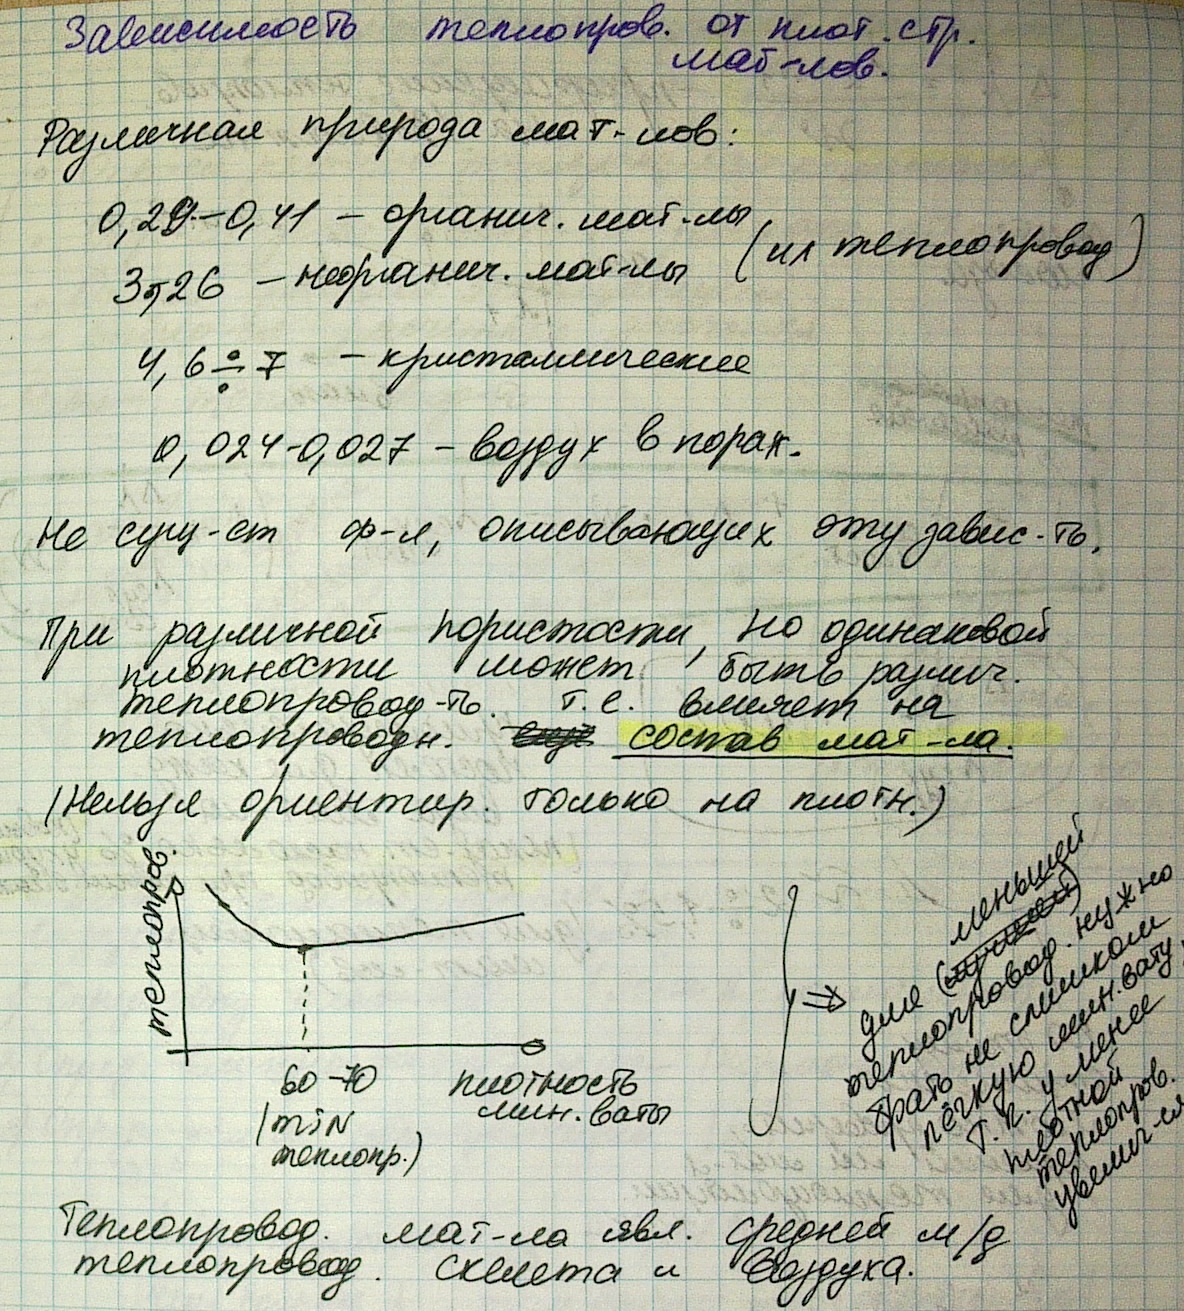 Зависимость теплопров. от плот. стр.
мат-лов.
Различная природа мат-лов:
0,29-0,41 – органич. мат-лы
(их теплопровод)
3,26 – неорганич. мат-лы
4,6÷7 – кристаллические
0,024-0,027 – воздух в порах.
Не сущ-ет ф-л, описывающих эту завис-ть.
При различной пористости, но одинаковой
плотности может быть различ.
теплопровод-ть. т.е. влияет на
теплопроводн. состав мат-ла.
(Нельзя ориентир. только на плотн.)
теплопров.
60-70
(min
теплопр.)
плотность
мин. ваты
⇒
меньшей
для
теплопровод. нужно
брать не слишком
лёгкую мин. вату,
т.к. у менее
плотной
теплопров.
увелич-ся
Теплопровод. мат-ла явл. средней м/д
теплопровод. скелета и воздуха.